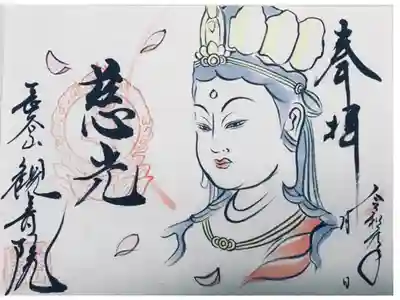 奉拝
令和 年
月 日
慈光
長谷山 観音院